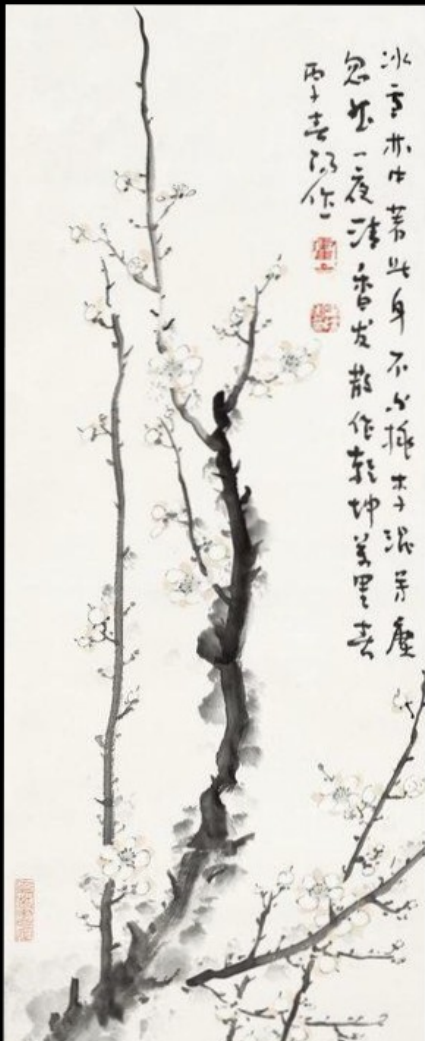 冰雪林中著此身不同桃李混芳塵
忽然一夜清香发散作乾坤萬里春
丙子春作